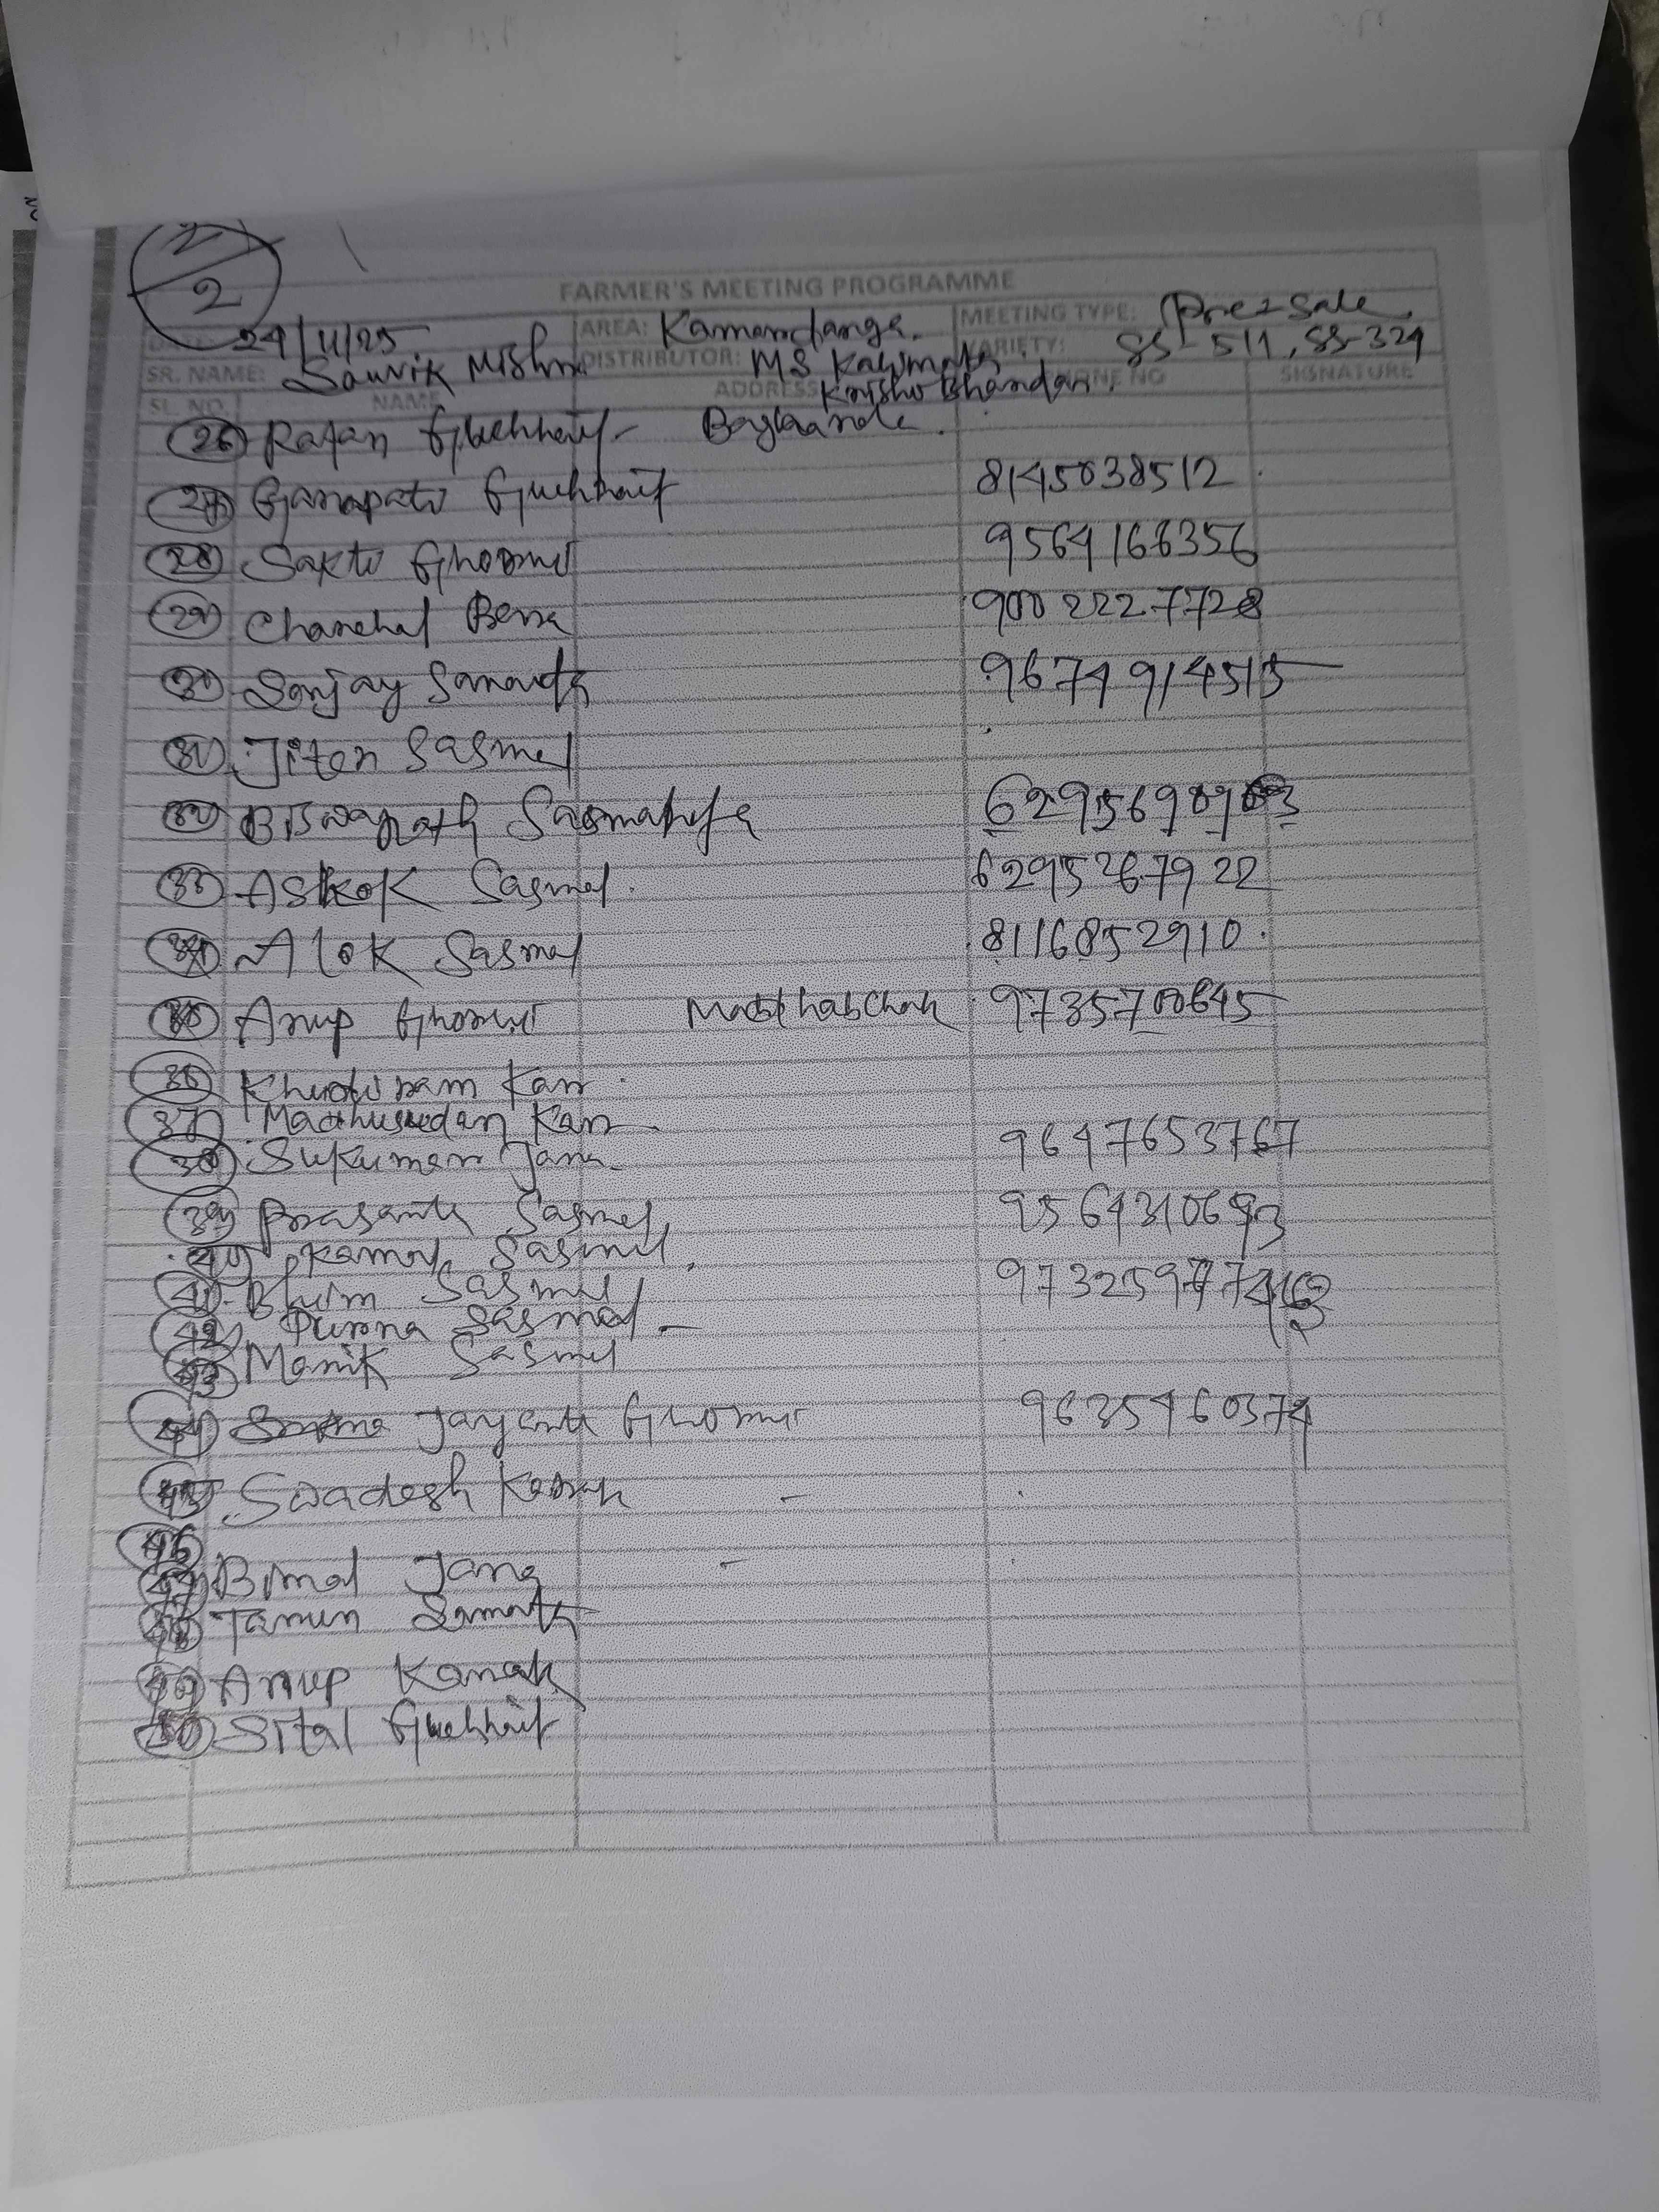 2/2
FARMER'S MEETING PROGRAMME
24/11/25 AREA: Kamardanga. MEETING TYPE: Pre-Sale
SR. NAME: Sauvik Mishra DISTRIBUTOR: MS Kalimata VARIETY: SS-511, SS-324
Krishi Bhandar.
SL. NO. NAME ADDRESS PHONE NO SIGNATURE
26 Rajan Guchhait -
27 Ganapati Guchhait 8145038512
28 Sakti Ghorai 9564166356
29 Chanchal Bera 9002227728
30 Sanjay Samanta 9674914515
31 Jiten Sasmal
32 Biswajit
33 Ashok Sasmal. 6295267922
34 Alok Sasmal 8116852910
35 Anup Ghorai Madhabchak 9735700645
36 Khudiram Kar
37 Madhusudan Kar
38 Sukumar Jana 9647653767
39 Prasanta Sasmal
40 Kamal Sasmal
41 Bhim Sasmal
42 Purna Sasmal -
43 Manik Sasmal
44 Jayanta Ghorai 9635460374
45 Swadesh Karak -
46
47 Bimal Jana -
48 Tarun Samanta
49 Anup Karak
50 Sital Guchhait